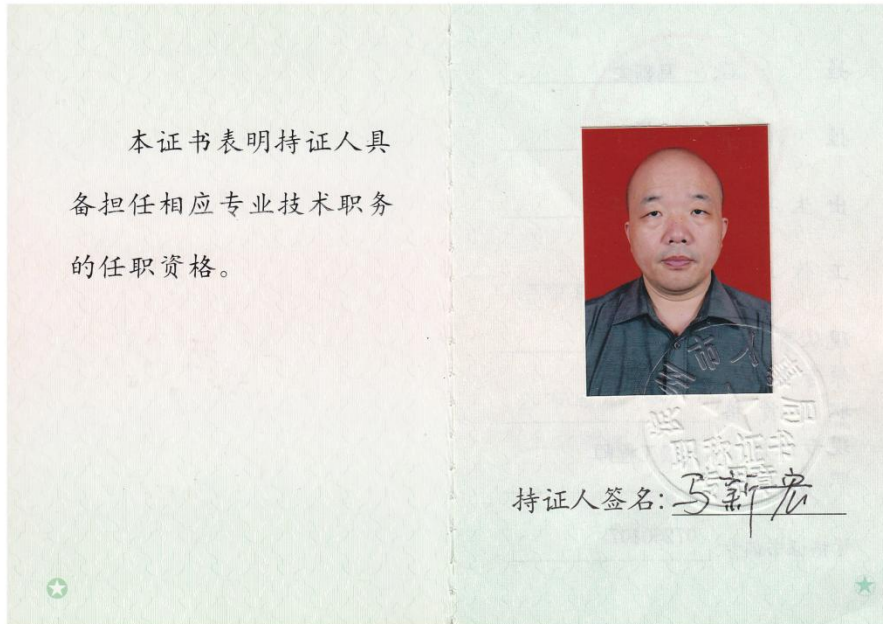 本证书表明持证人具
备担任相应专业技术职务
的任职资格。
市人事局
职称证书
专用章
持证人签名:马新宏